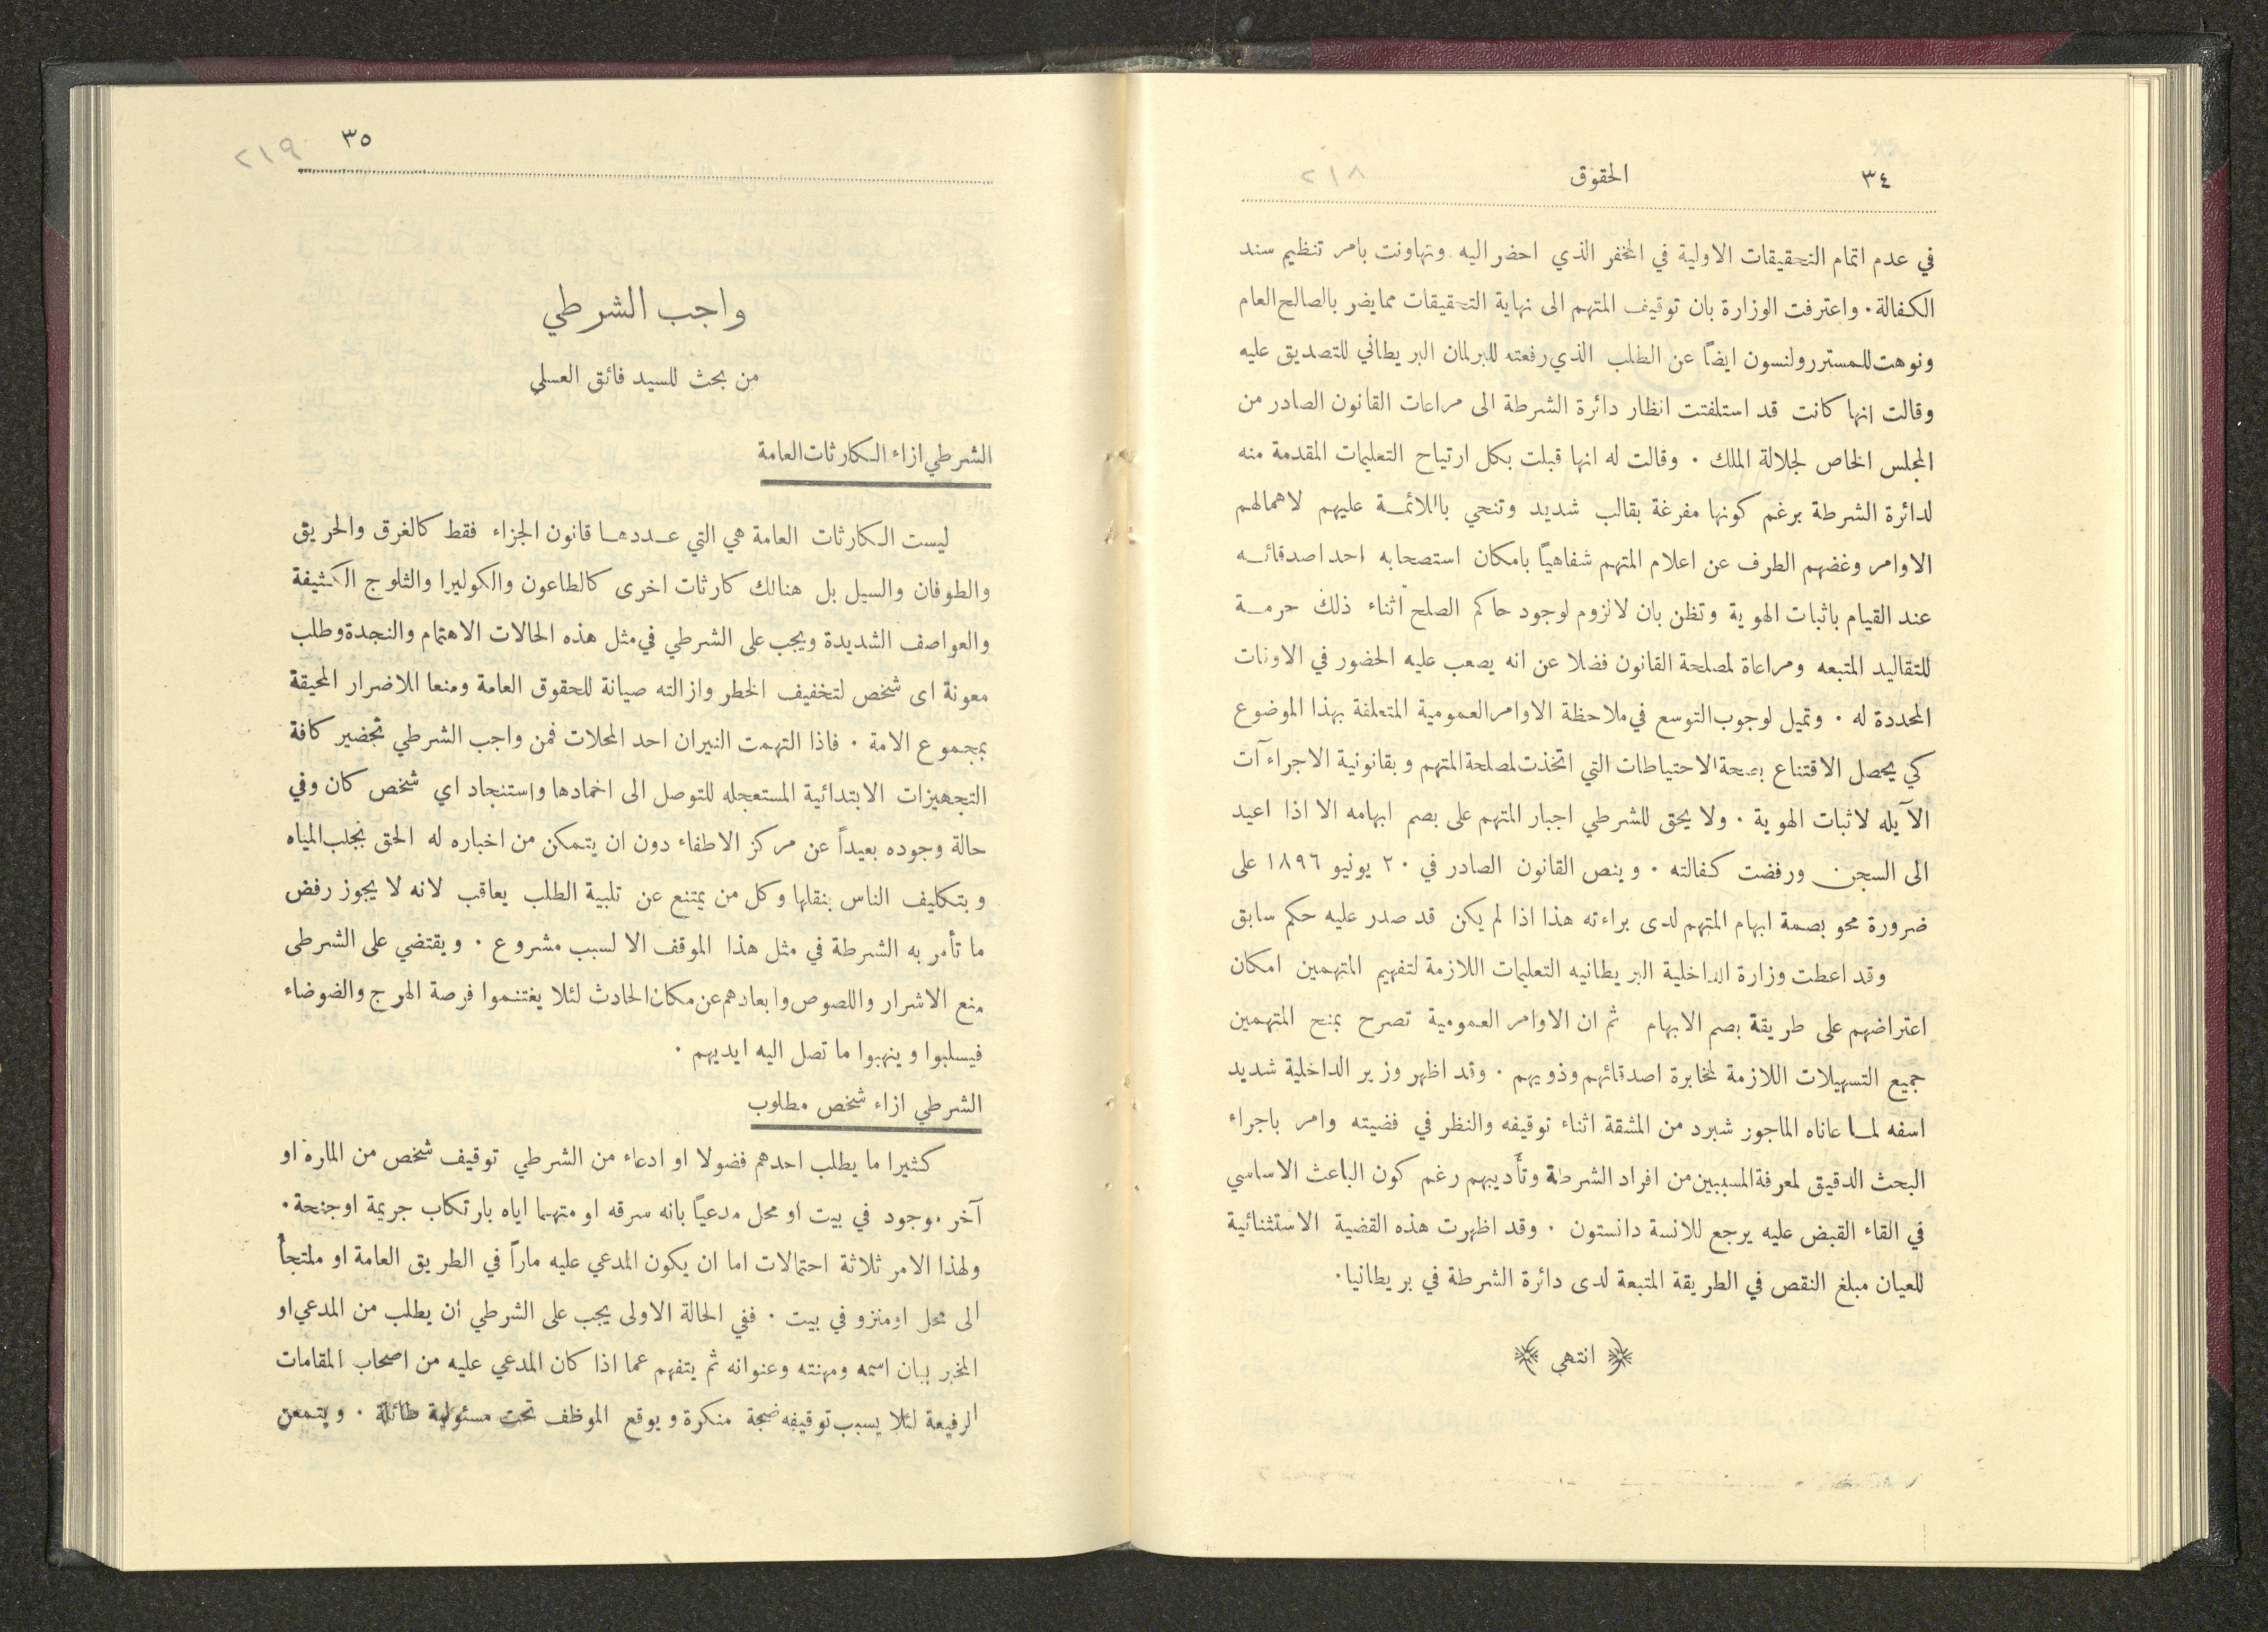 ٣٤ الحقوق ٢١٨
في عدم اتمام التحقيقات الاولية في المخفر الذي احضر اليه وتهاونت بامر تنظيم سند
الكفالة . واعترفت الوزارة بان توقيف المتهم الى نهاية التحقيقات مما يضر بالصالح العام
ونوهت للمستر رولنسون ايضاً عن الطلب الذي رفعته للبرلمان البريطاني للتصديق عليه
وقالت انها كانت قد استلفتت انظار دائرة الشرطة الى مراعات القانون الصادر من
المجلس الخاص لجلالة الملك . وقالت له انها قبلت بكل ارتياح التعليمات المقدمة منه
لدائرة الشرطة برغم كونها مفرغة بقالب شديد وتنحي باللائمة عليهم لاهمالهم
الاوامر وغضهم الطرف عن اعلام المتهم شفاهياً بامكان استصحابه احد اصدقائه
عند القيام باثبات الهوية وتظن بان لا لزوم لوجود حاكم الصلح اثناء ذلك حرمة
للتقاليد المتبعه ومراعاة لمصلحة القانون فضلا عن انه يصعب عليه الحضور في الاوقات
المحددة له . وتميل لوجوب التوسع في ملاحظة الاوامر العمومية المتعلقة بهذا الموضوع
كي يحصل الاقتناع بصحة الاحتياطات التي اتخذت لمصلحة المتهم وبقانونية الاجراءآت
الآيله لاثبات الهوية . ولا يحق للشرطي اجبار المتهم على بصم ابهامه الا اذا اعيد
الى السجن ورفضت كفالته . وينص القانون الصادر في ٢٠ يونيو ١٨٩٦ على
ضرورة محو بصمة ابهام المتهم لدى براءته هذا اذا لم يكن قد صدر عليه حكم سابق
وقد اعطت وزارة الداخلية البريطانيه التعليمات اللازمة لتفهيم المتهمين امكان
اعتراضهم على طريقة بصم الابهام ثم ان الاوامر العمومية تصرح بمنح المتهمين
جميع التسهيلات اللازمة لمخابرة اصدقائهم وذويهم . وقد اظهر وزير الداخلية شديد
اسفه لما عاناه الماجور شبرد من المشقة اثناء توقيفه والنظر في قضيته وامر باجراء
البحث الدقيق لمعرفة المسببين من افراد الشرطة وتأديبهم رغم كون الباعث الاساسي
في القاء القبض عليه يرجع للانسة دانستون . وقد اظهرت هذه القضية الاستثنائية
للعيان مبلغ النقص في الطريقة المتبعة لدى دائرة الشرطة في بريطانيا .
﴿ انتهى ﴾
٣٥ ٢١٩
واجب الشرطي
من بحث للسيد فائق العسلي
الشرطي ازاء الكارثات العامة
ليست الكارثات العامة هي التي عددها قانون الجزاء فقط كالغرق والحريق
والطوفان والسيل بل هنالك كارثات اخرى كالطاعون والكوليرا والثلوج الكثيفة
والعواصف الشديدة ويجب على الشرطي في مثل هذه الحالات الاهتمام والنجدة وطلب
معونة اى شخص لتخفيف الخطر وازالته صيانة للحقوق العامة ومنعا للاضرار المحيقة
بمجموع الامة . فاذا التهمت النيران احد المحلات فمن واجب الشرطي تحضير كافة
التجهيزات الابتدائية المستعجله للتوصل الى اخمادها واستنجاد اي شخص كان وفي
حالة وجوده بعيداً عن مركز الاطفاء دون ان يتمكن من اخباره له الحق بجلب المياه
وبتكليف الناس بنقلها وكل من يمتنع عن تلبية الطلب يعاقب لانه لا يجوز رفض
ما تأمر به الشرطة في مثل هذا الموقف الا لسبب مشروع . ويقتضي على الشرطى
منع الاشرار واللصوص وابعادهم عن مكان الحادث لئلا يغتنموا فرصة الهرج والضوضاء
فيسلبوا وينهبوا ما تصل اليه ايديهم .
الشرطي ازاء شخص مطلوب
كثيرا ما يطلب احدهم فضولا او ادعاء من الشرطي توقيف شخص من المارة او
آخر موجود في بيت او محل مدعياً بانه سرقه او متهما اياه بارتكاب جريمة او جنحة .
ولهذا الامر ثلاثة احتمالات اما ان يكون المدعي عليه ماراً في الطريق العامة او ملتجأ
الى محل او منزو في بيت . ففي الحالة الاولى يجب على الشرطي ان يطلب من المدعي او
المخبر بيان اسمه ومهنته وعنوانه ثم يتفهم عما اذا كان المدعي عليه من اصحاب المقامات
الرفيعة لئلا يسبب توقيفه ضجة منكرة ويوقع الموظف تحت مسئولية طائلة . ويتمعن